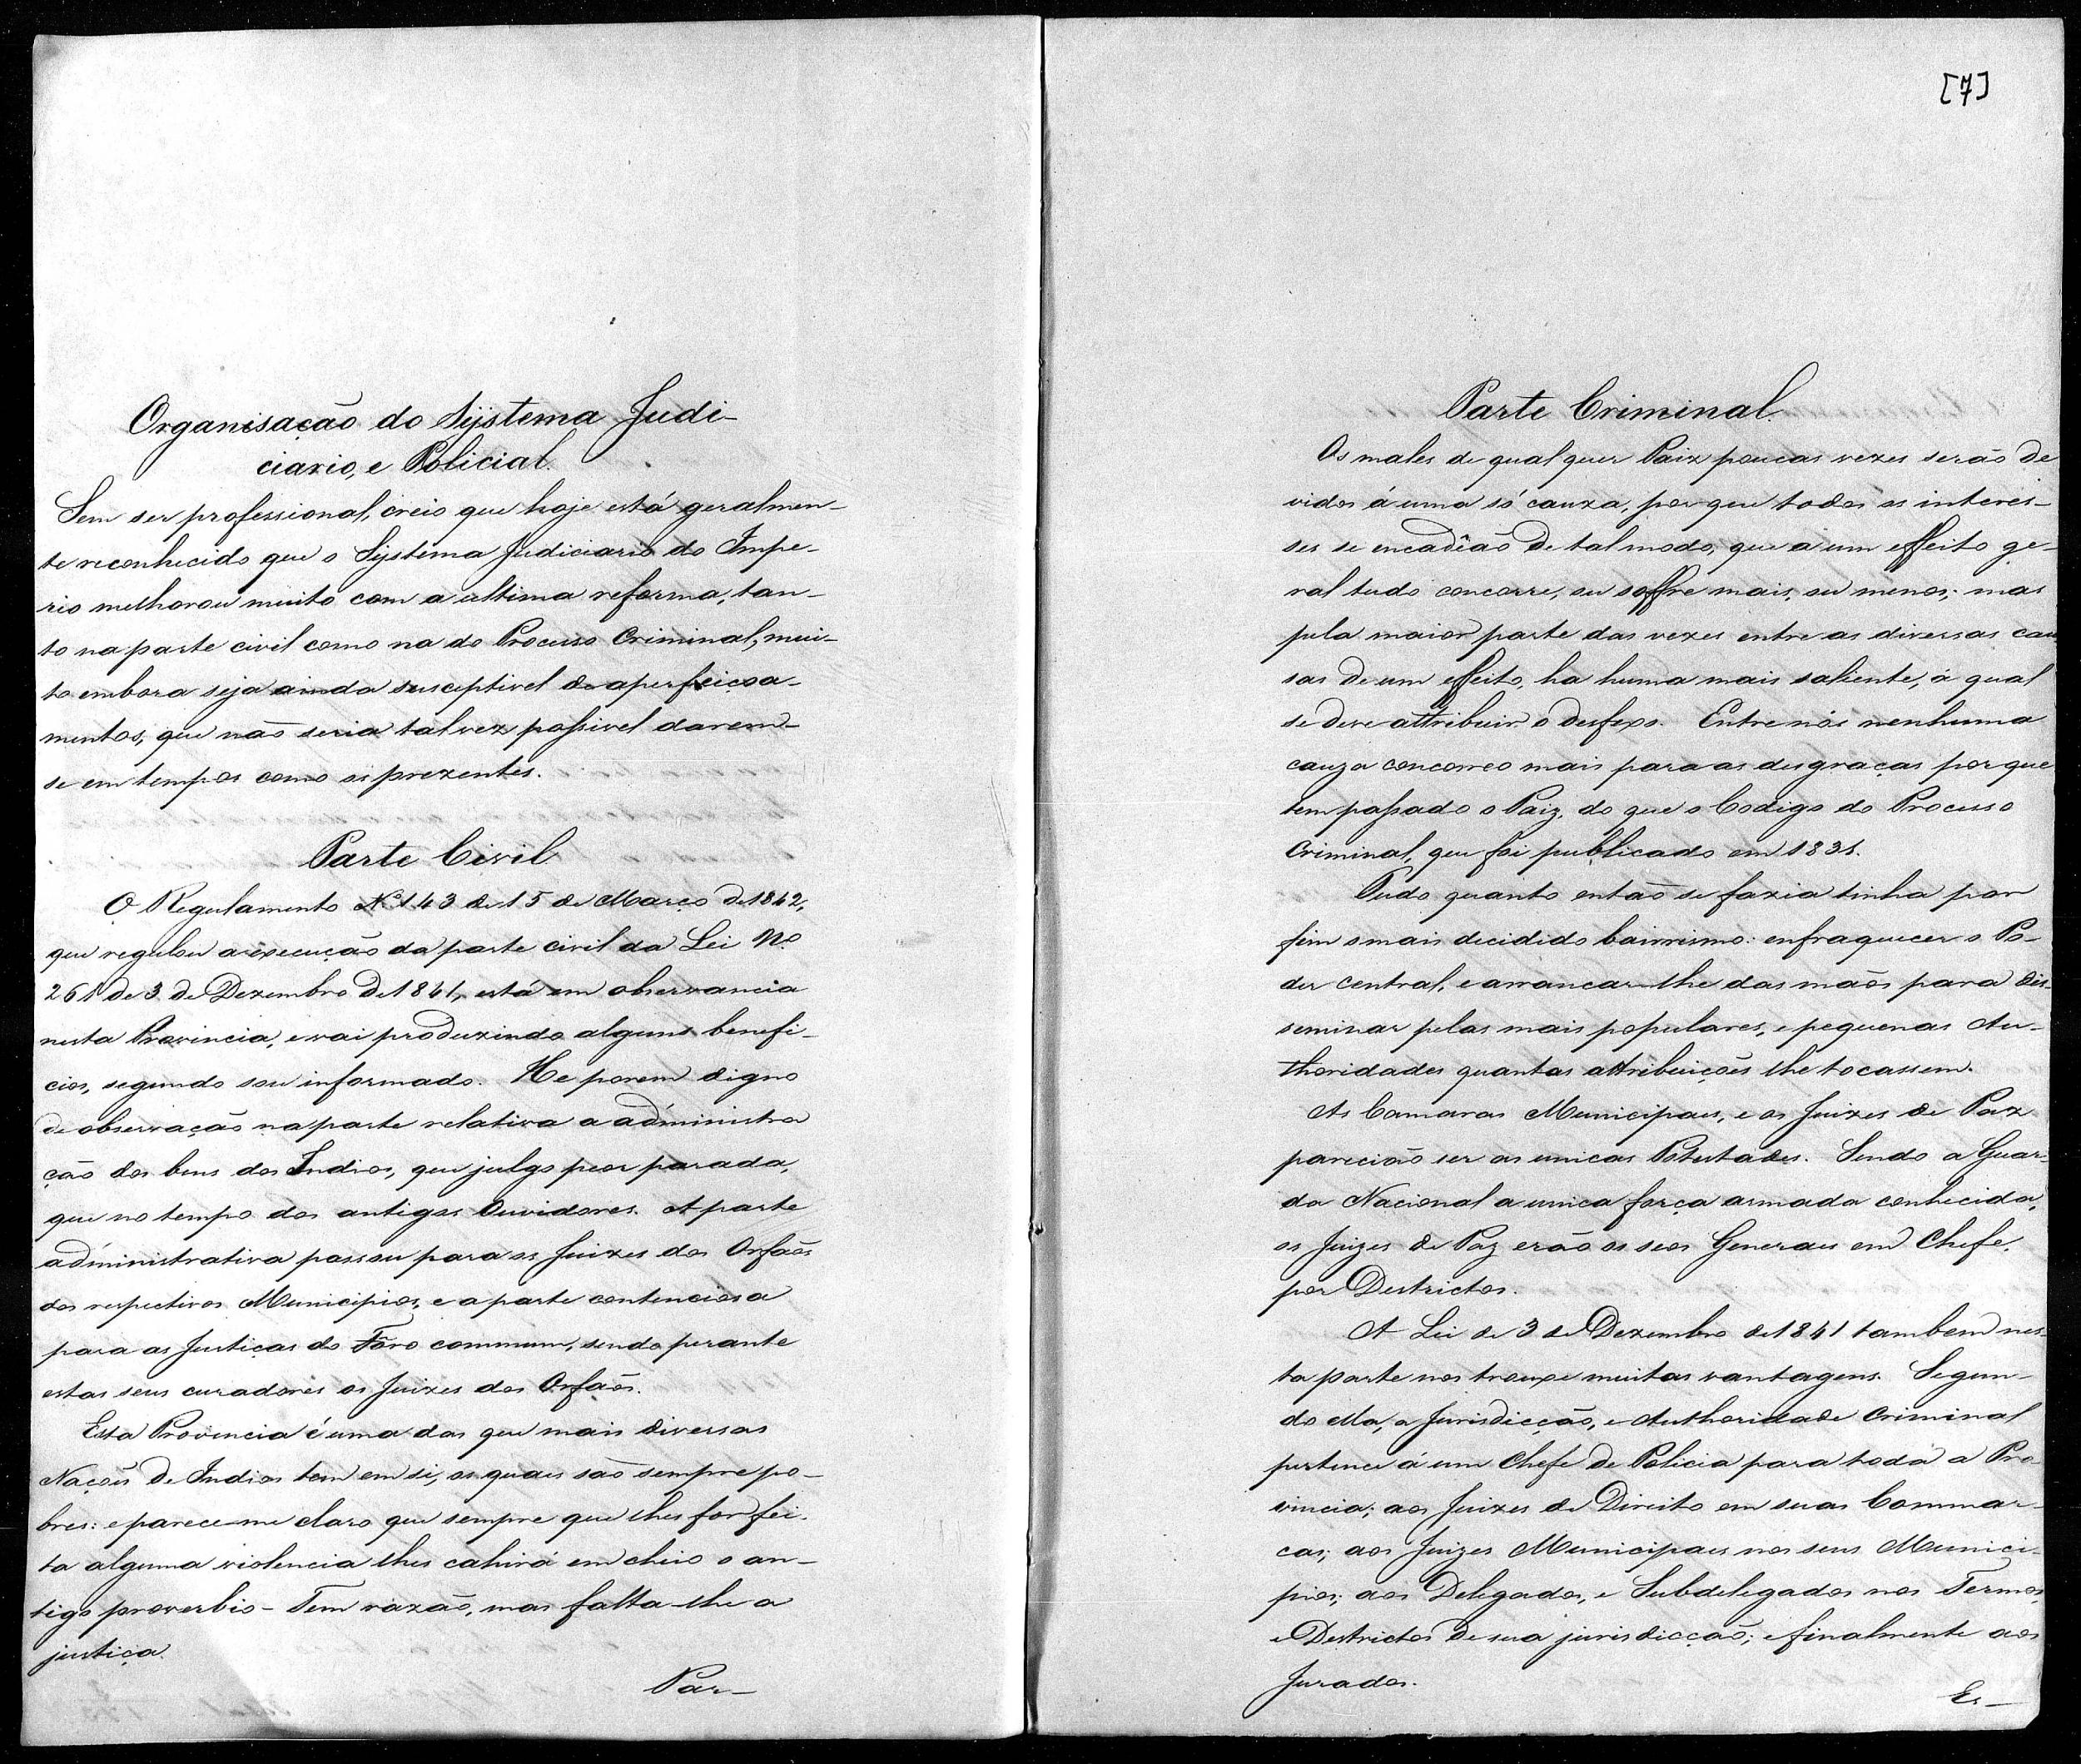 Organisação do Systema Judi-
ciario, e Policial.
Sem ser professional, creio que hoje está geralmen-
te reconhecido que o Systema Judiciario do Impe-
rio melhorou muito com a ultima reforma, tan-
to na parte civil como na do Processo Criminal, mui-
to embora seja ainda susceptivel de aperfeiçoa-
mentos, que não seria talvez possivel darem-
se em tempos como os prezentes.
Parte Civil
O Regulamento Nº 143 de 15 de Março de 1842,
que regulou a execução da parte civil da Lei Nº
261 de 3 de Dezembro de 1841, está em observancia
nesta Provincia, e vai produzindo alguns benefi-
cios, segundo sou informado. He porem digno
de observação na parte relativa a administra
ção dos bens dos Indios, que julgo peor parada,
que no tempo dos antigos Ouvidores. A parte
administrativa passou para os Juizes dos Orfãos
dos respectivos Municipios, e a parte contenciosa
para as Justiças do Fôro commum, sendo perante
estas seus curadores os Juizes dos Orfãos.
Esta Provincia é uma das que mais diversas
Nações de Indios tem em si, os quaes são sempre po-
bres: e parece-me claro que sempre que lhes for fei-
ta alguma violencia lhes cahirá em cheio o an-
tigo proverbio - Tem razão, mas falta-lhe a
justiça.
Par-
[7]
Parte Criminal.
Os males de qualquer Paiz poucas vezes serão de
vidos á uma só cauza, porque todos os interes-
ses se encadêão de tal modo, que a um effeito ge-
ral tudo concorre, ou soffre mais, ou menos; mas
pela maior parte das vezes entre as diversas cau
sas de um effeito, ha huma mais saliente, á qual
se deve attribuir o desfexo. Entre nós nenhuma
cauza concorreo mais para as desgraças por que
tem passado o Paiz, do que o Codigo do Processo
Criminal, que foi publicado em 1831.
Tudo quanto então se fazia tinha por
fim o mais decidido bairrismo: enfraquecer o Po-
der central, e arrancar-lhe das mãos para dis-
seminar pelas mais populares, e pequenas Au-
thoridades quantas attribuições lhe tocassem.
As Camaras Municipaes, e os Juizes de Paz
parecião ser as unicas Potestades. Sendo a Guar-
da Nacional a unica força armada conhecida,
os Juizes de Paz erão os seos Generaes em Chefe,
por Destrictos.
A Lei de 3 de Dezembro de 1841 tambem nes-
ta parte nos trouxe muitas vantagens. Segun-
do ella, a Jurisdicção, e Authoridade Criminal
pertence á um Chefe de Policia para toda a Pro-
vincia; aos Juizes de Direito em suas Commar-
cas; aos Juizes Municipaes nos seus Munici-
pios; aos Delegados, e Subdelegados nos Termos,
e Destrictos de sua jurisdicção; e finalmente aos
Jurados.
Es-